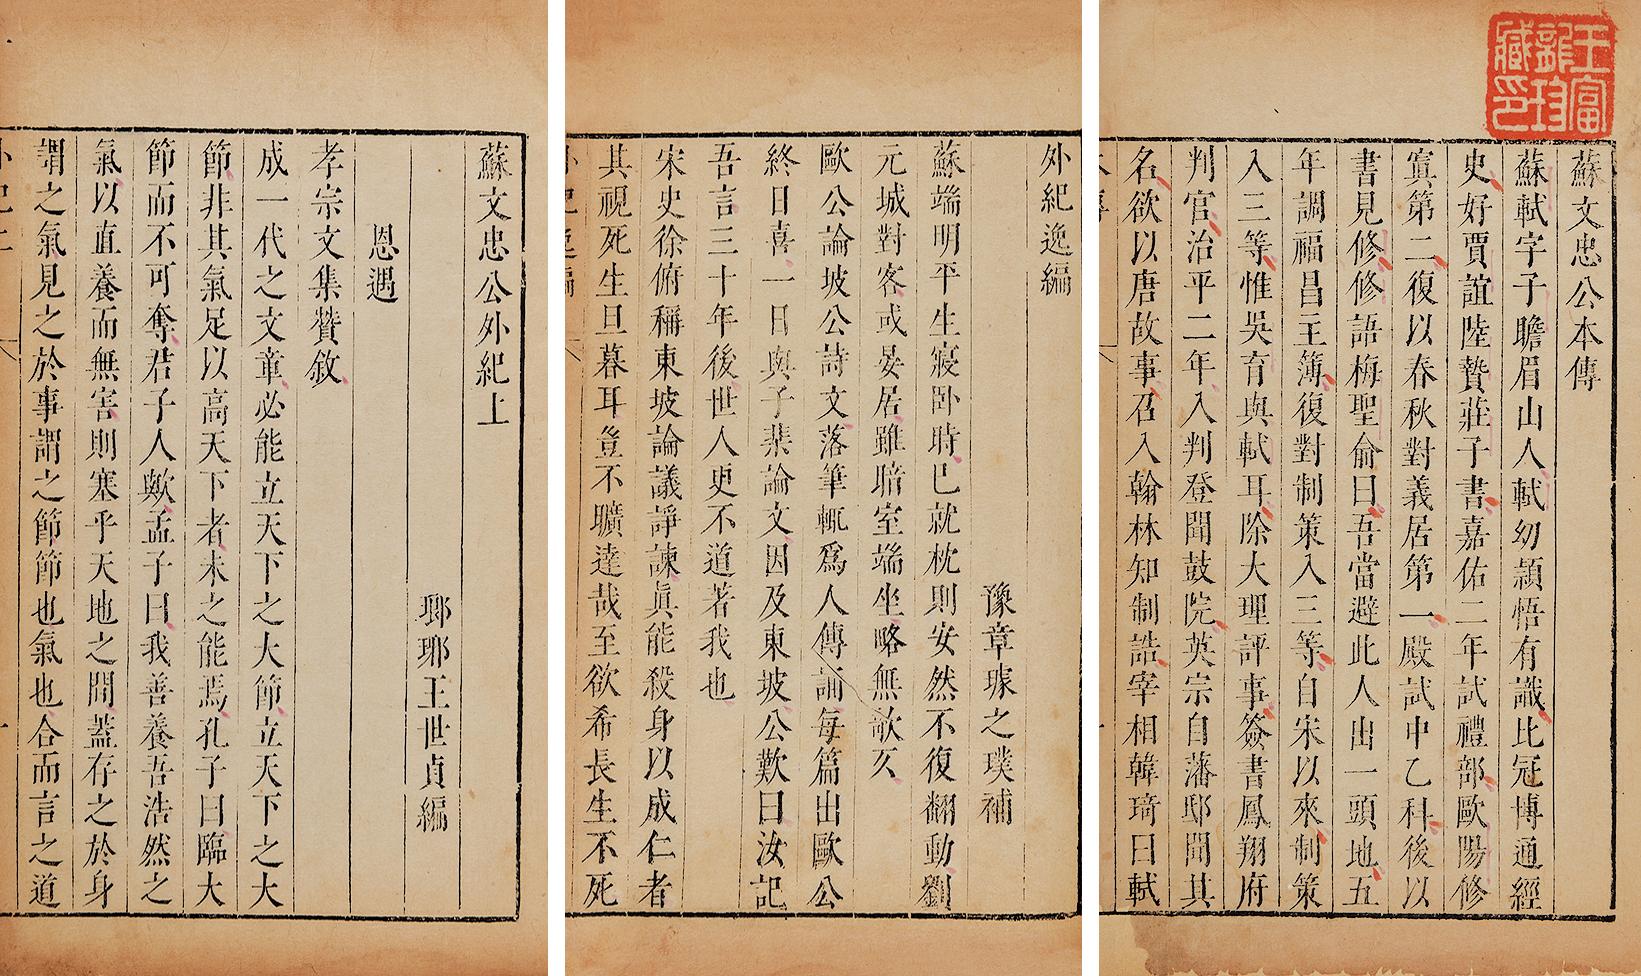 王富
部珍
藏印
蘇文忠公本傳
蘇軾字子瞻眉山人軾幼頴悟有識比冠博通經
史好賈誼陸贄莊子書嘉佑二年試禮部歐陽修
寘第二復以春秋對義居第一殿試中乙科後以
書見修修語梅聖俞曰吾當避此人出一頭地五
年調福昌主簿復對制策入三等自宋以來制策
入三等惟吳育與軾耳除大理評事簽書鳳翔府
判官治平二年入判登聞鼓院英宗自藩邸聞其
名欲以唐故事召入翰林知制誥宰相韓琦曰軾
外紀逸編
豫章璩之璞補
蘇端明平生寢卧時已就枕則安然不復翻動劉
元城對客或晏居雖暗室端坐略無欹仄
歐公論坡公詩文落筆輒爲人傳誦每篇出歐公
終日喜一日與子棐論文因及東坡公歎曰汝記
吾言三十年後世人更不道著我也
宋史徐俯稱東坡論議諍諫眞能殺身以成仁者
其視死生旦暮耳豈不曠達哉至欲希長生不死
外紀逸編
蘇文忠公外紀上
瑯琊王世貞編
恩遇
孝宗文集贊敘
成一代之文章必能立天下之大節立天下之大
節非其氣足以高天下者未之能焉孔子曰臨大
節而不可奪君子人歟孟子曰我善養吾浩然之
氣以直養而無害則塞乎天地之間蓋存之於身
謂之氣見之於事謂之節節也氣也合而言之道